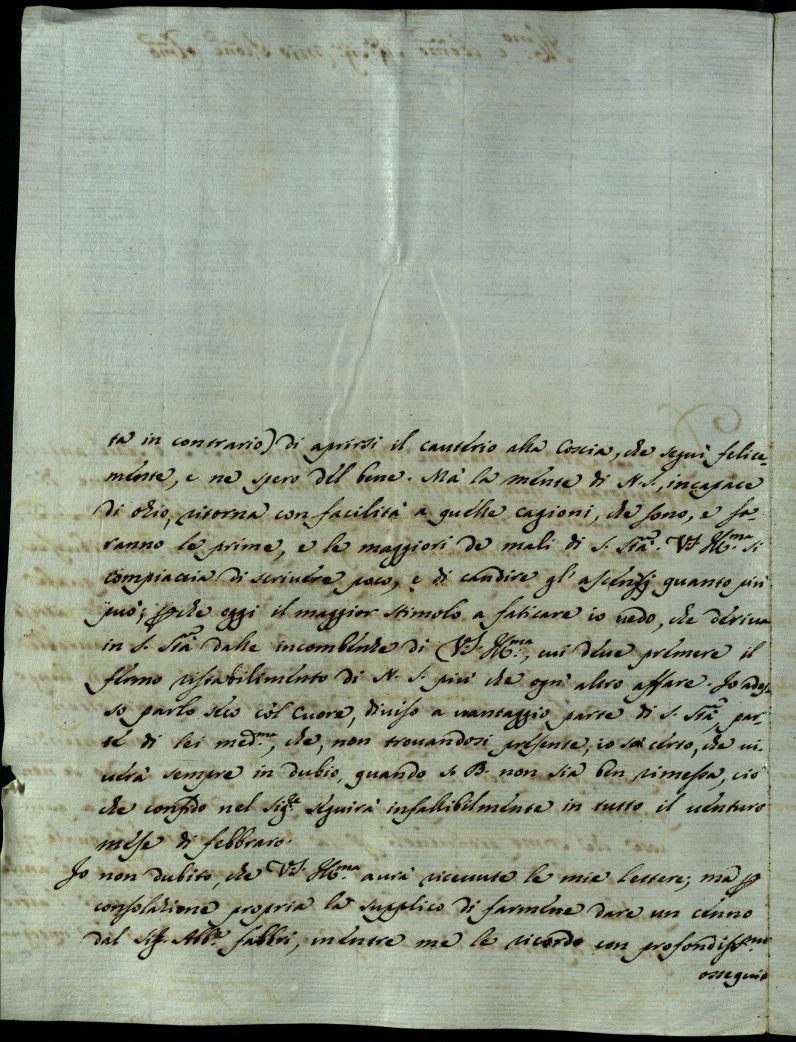 ta in contrario) di aprirsi il cauterio alla Coscia, che seguì felice-
mente, e ne spero del bene. Mà la mente di N. S., incapace
di ozio, ritorna con facilità a quelle cagioni, che sono, e sa-
ranno le prime, e le maggiori de mali di S. Stà. VS. Ill.ma si
compiaccia di scrivere poco, e di candire gl' assenzj quanto più
può; pche oggi il maggior stimolo a faticare io vedo, che deriva
in S. Stà dalle incombenze di VS. Ill.ma, cui deve premere il
fermo ristabilimento di N. S. più che ogn' altro affare. Io ades-
so parlo seco col Cuore, diviso a vantaggio parte di S. Stà, par-
te di lei med.ma, che, non trovandosi presente, io son certo, che vi-
verà sempre in dubio, quando S. B. non sia ben rimessa, ciò
che confido nel Sig.re seguirà infallibilmente in tutto il venturo
mese di febbraro.
Io non dubito, che VS. Ill.ma avrà ricevute le mie lettere; mà p
consolazione propria la supplico di farmene dare un cenno
dal Sig. Abb.e Fabbri, mentre me le ricordo con profondiss.mo
ossequio